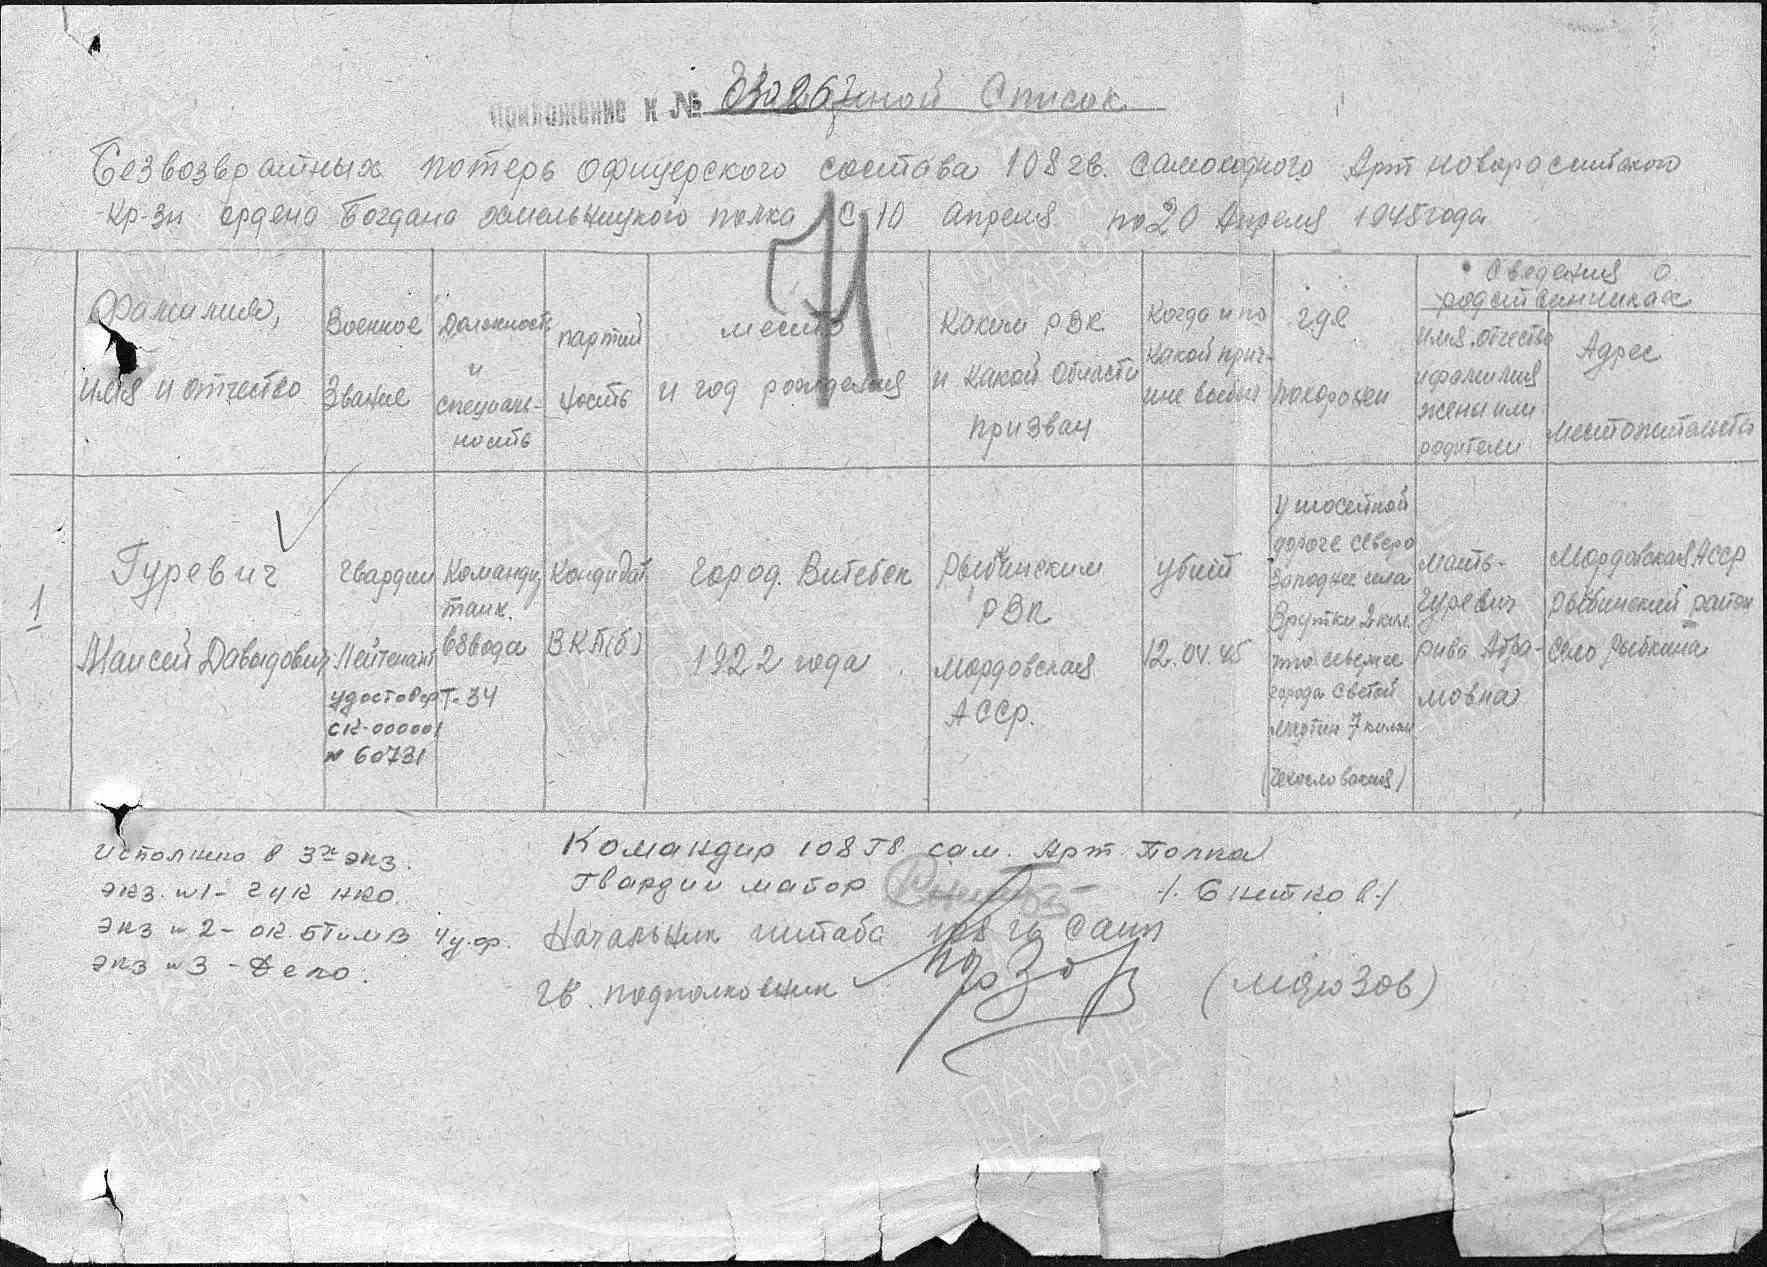 Приложение к №
Список
Безвозвратных потерь офицерского состава 108 гв. Самоходного Арт новоросийского
Кр-Зн ордена Богдана хмельницкого полка с 10 Апреля по 20 Апреля 1945 года
71
Фамилия,
имя и отчество
Военное
Звание
Должность
и
специаль-
ность
партий
ность
место
и год рождения
Каким РВК
и какой области
призван
Когда и по
какой прич-
ине выбыл
где
похоронен
Сведения о
родственниках
имя, отчество
и фамилия
жены или
родители
Адрес
Местожительства
1
Гуревич
Маисей Давыдович
гвардии
Лейтенант
удостовер
СК-000001
№ 60731
Команди
танк.
взвода
Т-34
Кондидат
ВКП(б)
город Витебск
1922 года
Рыбинским
РВК
Мордовская
АССр.
убит
12.04.45
У шосейной
дороге северо
Западнее села
Врутки 2 клм.
севернее
города Светой
Мартин 7 килом
(Чехословакия)
Мать-
Гуревич
Рива Абра-
мовна
Мордовская АССР
Рыбинский район
Село Рыбкина
Исполнено в 3х экз.
экз. №1- ГУК НКО.
Экз №2- ОК БТиМВ 4 у.ф.
экз №3 - Дело.
Командир 108 Гв сам. Арт. Полка
Гвардии майор /Снитков/
Начальник штаба 108 гв САП
гв. подполковник (Морозов)
ПАМЯТЬ
НАРОДА